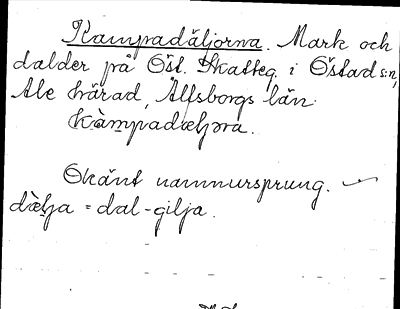 Kampadäljorna. Mark och
dalder på Öst. Skatteg. i Östad s:n,
Ale härad, Älfsborgs län.
Kàm̥padæljɔrа.
Okänt namnursprung.
dæ̀lja = dal-gilja.